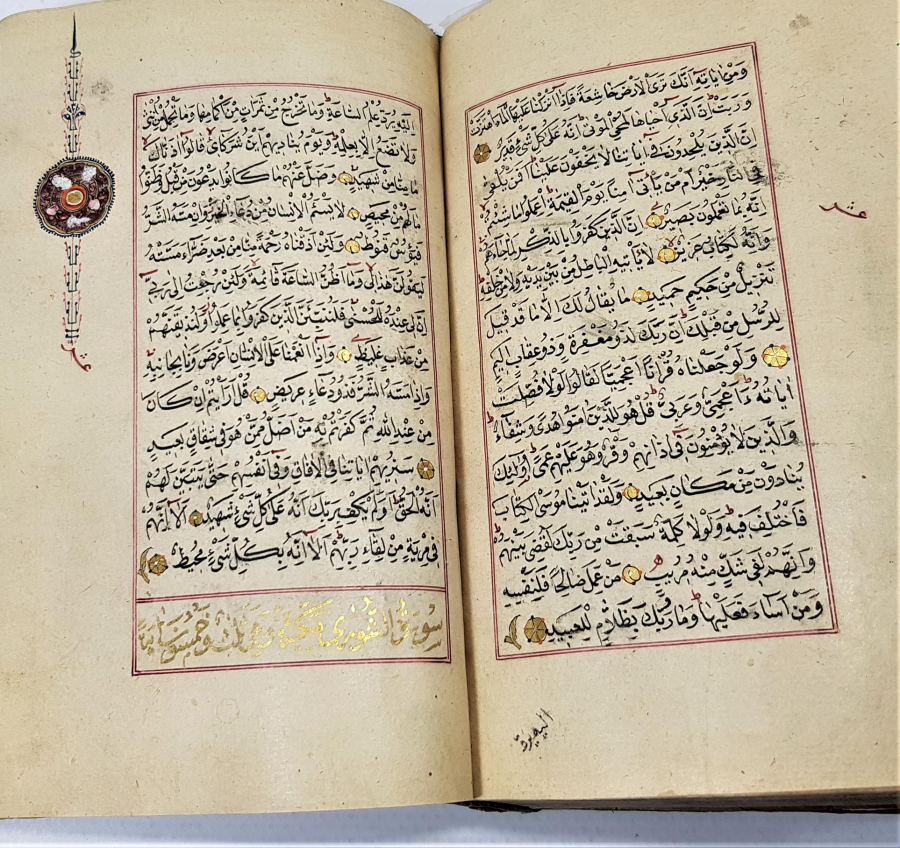 وَمِنْ اٰيَاتِهٖٓ اَنَّكَ تَرَى الْاَرْضَ خَاشِعَةً فَاِذَٓا اَنْزَلْنَا عَلَيْهَا الْمَٓاءَ اهْتَزَّتْ
وَرَبَتْ اِنَّ الَّذٖٓي اَحْيَاهَا لَمُحْيِي الْمَوْتٰى اِنَّهُ عَلٰى كُلِّ شَيْءٍ قَدٖيرٌ
اِنَّ الَّذٖينَ يُلْحِدُونَ فٖٓي اٰيَاتِنَا لَا يَخْفَوْنَ عَلَيْنَا اَفَمَنْ يُلْقٰى
فِي النَّارِ خَيْرٌ اَمْ مَنْ يَأْتٖٓي اٰمِنًا يَوْمَ الْقِيٰمَةِ اِعْمَلُوا مَا شِئْتُمْ
اِنَّهُ بِمَا تَعْمَلُونَ بَصٖيرٌ اِنَّ الَّذٖينَ كَفَرُوا بِالذِّكْرِ لَمَّا جَٓاءَهُمْ
وَاِنَّهُ لَكِتَابٌ عَزٖيزٌ لَا يَأْتٖيهِ الْبَاطِلُ مِنْ بَيْنِ يَدَيْهِ وَلَا مِنْ خَلْفِهٖ
تَنْزٖيلٌ مِنْ حَكٖيمٍ حَمٖيدٍ مَا يُقَالُ لَكَ اِلَّا مَا قَدْ قٖيلَ
لِلرُّسُلِ مِنْ قَبْلِكَ اِنَّ رَبَّكَ لَذُو مَغْفِرَةٍ وَذُو عِقَابٍ اَلٖيمٍ
وَلَوْ جَعَلْنَاهُ قُرْاٰنًا اَعْجَمِيًّا لَقَالُوا لَوْلَا فُصِّلَتْ
اٰيَاتُهُ ءَاَعْجَمِيٌّ وَعَرَبِيٌّ قُلْ هُوَ لِلَّذٖينَ اٰمَنُوا هُدًى وَشِفَٓاءٌ
وَالَّذٖينَ لَا يُؤْمِنُونَ فٖٓي اٰذَانِهِمْ وَقْرٌ وَهُوَ عَلَيْهِمْ عَمًى اُولٰٓئِكَ
يُنَادَوْنَ مِنْ مَكَانٍ بَعٖيدٍ وَلَقَدْ اٰتَيْنَا مُوسَى الْكِتَابَ
فَاخْتُلِفَ فٖيهِ وَلَوْلَا كَلِمَةٌ سَبَقَتْ مِنْ رَبِّكَ لَقُضِيَ بَيْنَهُمْ
وَاِنَّهُمْ لَفٖي شَكٍّ مِنْهُ مُرٖيبٍ مَنْ عَمِلَ صَالِحًا فَلِنَفْسِهٖ
وَمَنْ اَسَٓاءَ فَعَلَيْهَا وَمَا رَبُّكَ بِظَلَّامٍ لِلْعَبٖيدِ
اليه يرد
اِلَيْهِ يُرَدُّ عِلْمُ السَّاعَةِ وَمَا تَخْرُجُ مِنْ ثَمَرَاتٍ مِنْ اَكْمَامِهَا وَمَا تَحْمِلُ مِنْ اُنْثٰى
وَلَا تَضَعُ اِلَّا بِعِلْمِهٖ وَيَوْمَ يُنَادٖيهِمْ اَيْنَ شُرَكَٓائٖي قَالُٓوا اٰذَنَّاكَ
مَا مِنَّا مِنْ شَهٖيدٍ وَضَلَّ عَنْهُمْ مَا كَانُوا يَدْعُونَ مِنْ قَبْلُ وَظَنُّوا
مَا لَهُمْ مِنْ مَحٖيصٍ لَا يَسْـَٔمُ الْاِنْسَانُ مِنْ دُعَٓاءِ الْخَيْرِ وَاِنْ مَسَّهُ الشَّرُّ
فَيَؤُسٌ قَنُوطٌ وَلَئِنْ اَذَقْنَاهُ رَحْمَةً مِنَّا مِنْ بَعْدِ ضَرَّٓاءَ مَسَّتْهُ
لَيَقُولَنَّ هٰذَا لٖي وَمَٓا اَظُنُّ السَّاعَةَ قَٓائِمَةً وَلَئِنْ رُجِعْتُ اِلٰى رَبّٖٓي
اِنَّ لٖي عِنْدَهُ لَلْحُسْنٰى فَلَنُنَبِّئَنَّ الَّذٖينَ كَفَرُوا بِمَا عَمِلُوا وَلَنُذٖيقَنَّهُمْ
مِنْ عَذَابٍ غَلٖيظٍ وَاِذَٓا اَنْعَمْنَا عَلَى الْاِنْسَانِ اَعْرَضَ وَنَاٰ بِجَانِبِهٖ
وَاِذَا مَسَّهُ الشَّرُّ فَذُو دُعَٓاءٍ عَرٖيضٍ قُلْ اَرَاَيْتُمْ اِنْ كَانَ
مِنْ عِنْدِ اللّٰهِ ثُمَّ كَفَرْتُمْ بِهٖ مَنْ اَضَلُّ مِمَّنْ هُوَ فٖي شِقَاقٍ بَعٖيدٍ
سَنُرٖيهِمْ اٰيَاتِنَا فِي الْاٰفَاقِ وَفٖٓي اَنْفُسِهِمْ حَتّٰى يَتَبَيَّنَ لَهُمْ
اَنَّهُ الْحَقُّ اَوَلَمْ يَكْفِ بِرَبِّكَ اَنَّهُ عَلٰى كُلِّ شَيْءٍ شَهٖيدٌ اَلَٓا اِنَّهُمْ
فٖي مِرْيَةٍ مِنْ لِقَٓاءِ رَبِّهِمْ اَلَٓا اِنَّهُ بِكُلِّ شَيْءٍ مُحٖيطٌ
سورة الشورى مكية وهى ثلث وخمسون اية